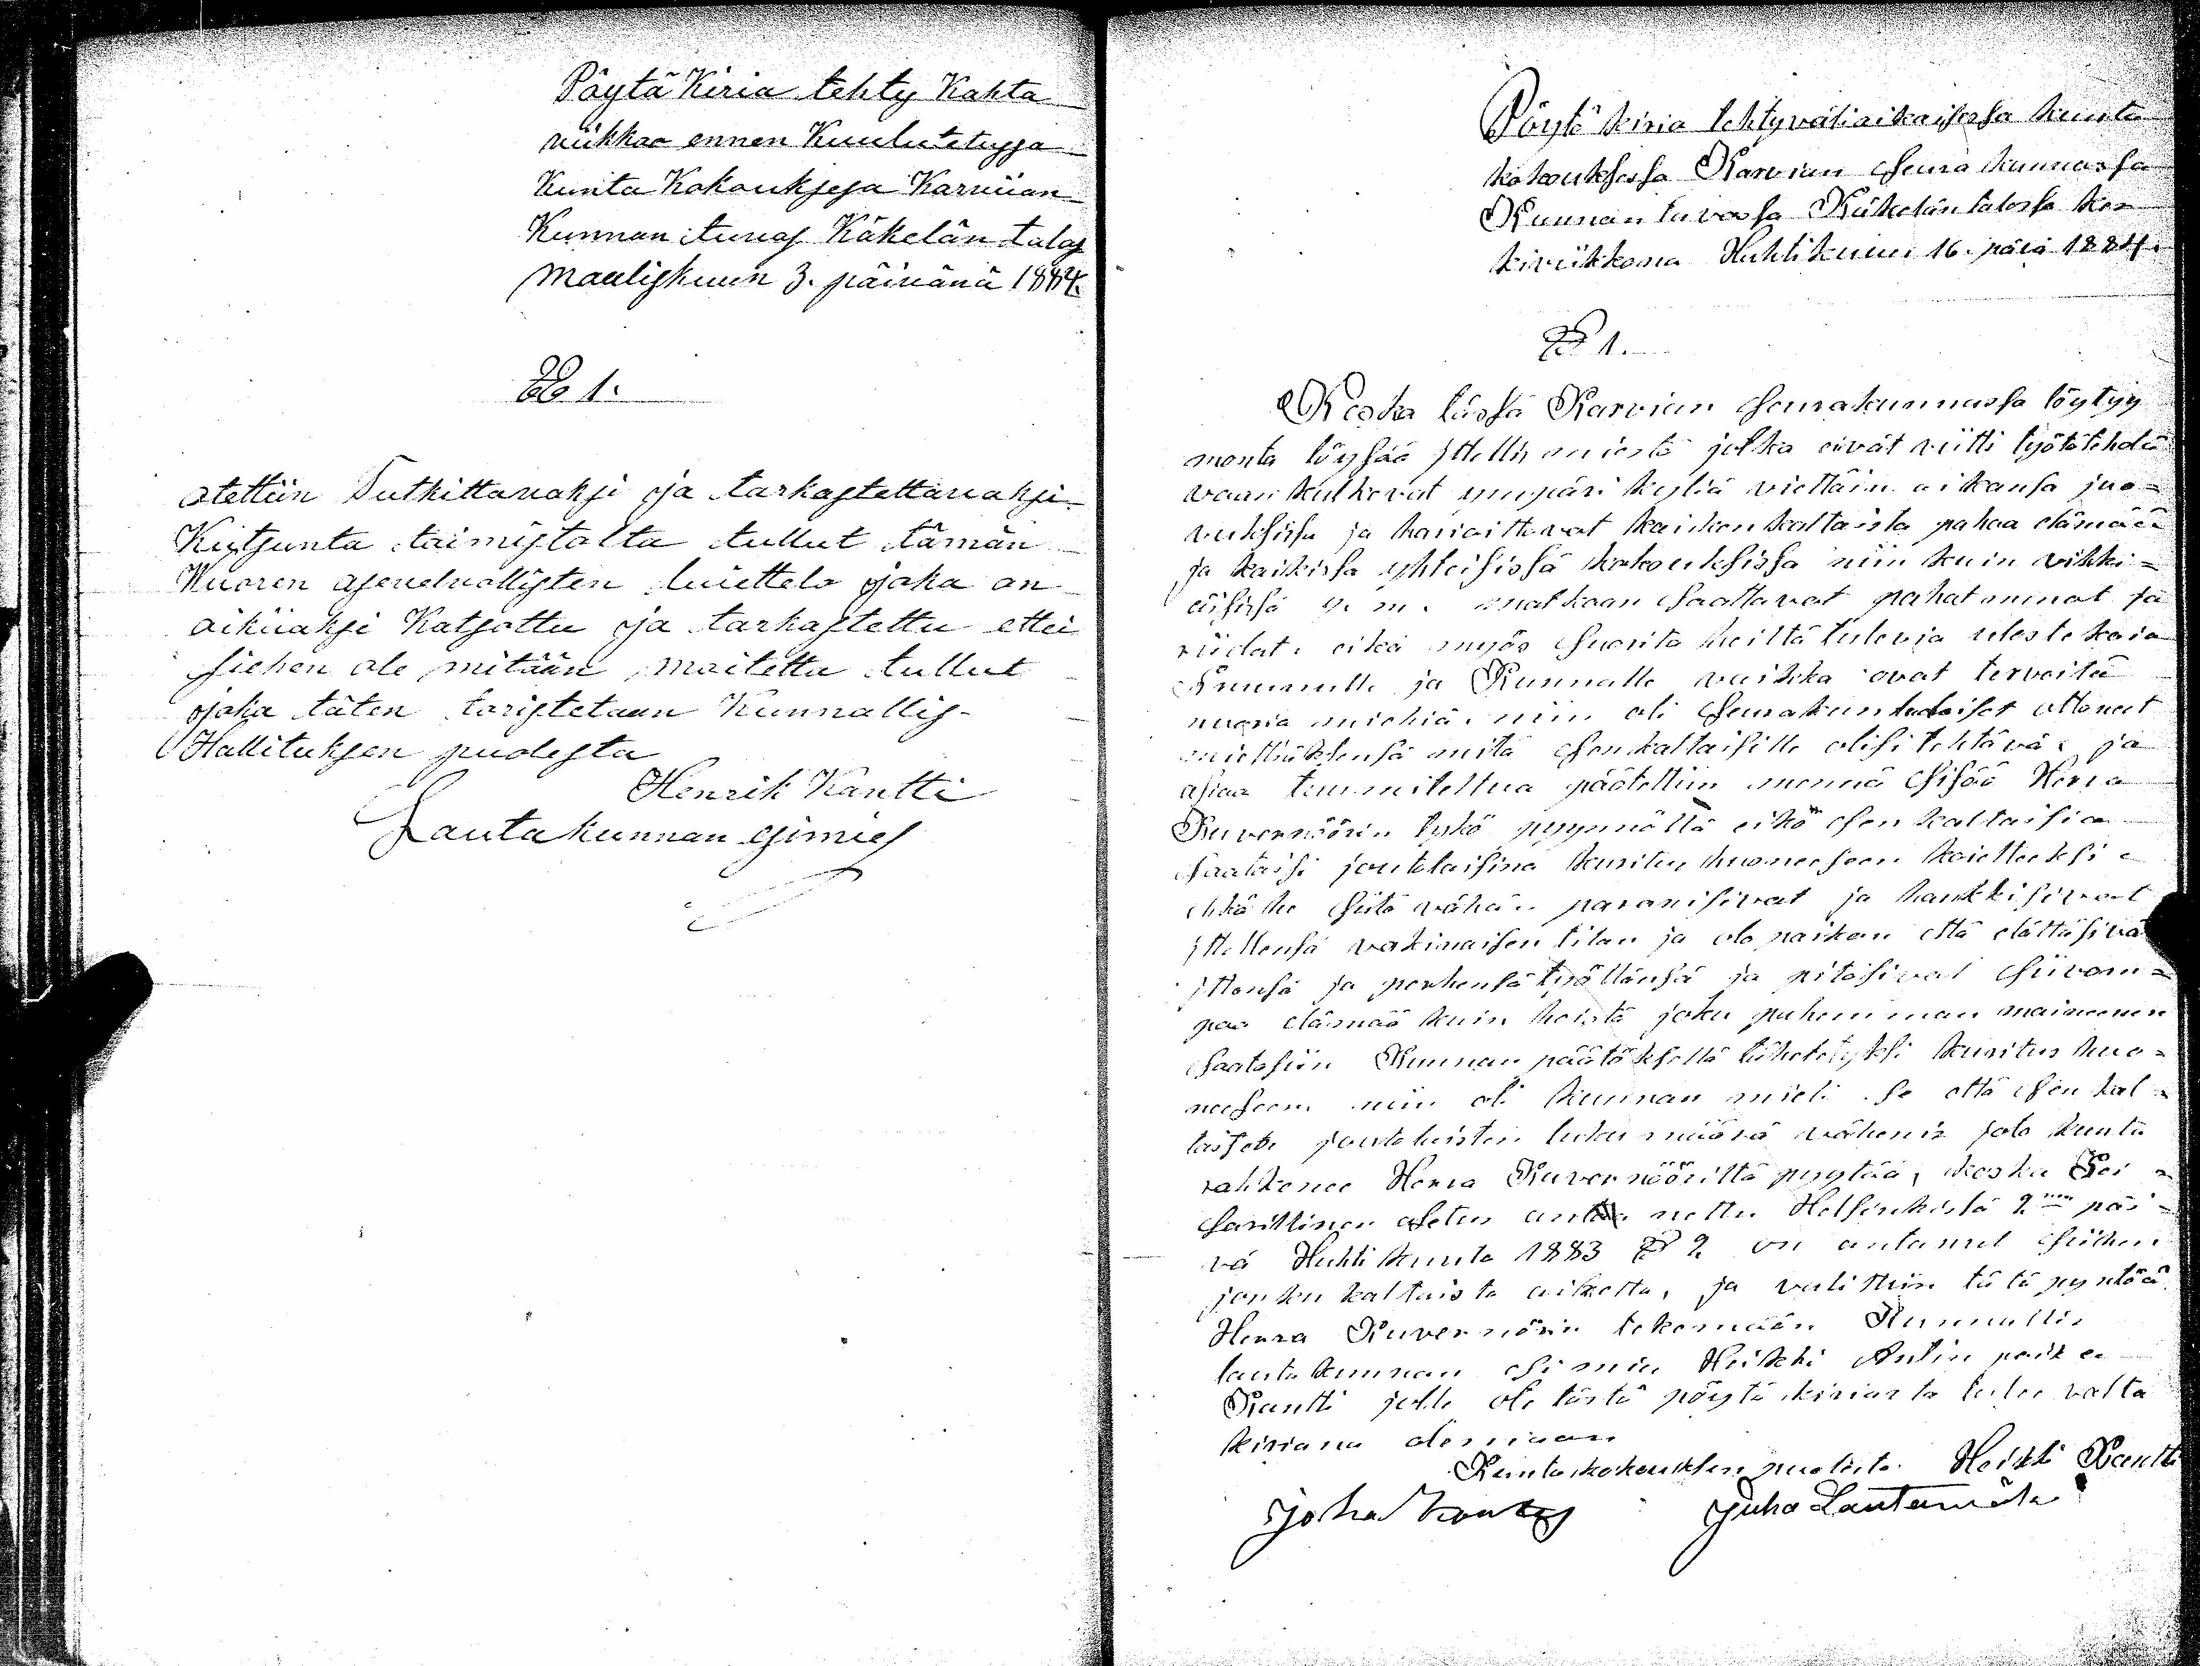 Pöytä Kiria tehty Kahta
viikkoa ennen Kuulutetussa
Kunta Kokouksesa Karviian
Kunnan tuvas Käkelän talos
Maaliskuun 3. päivänä 1884.
§ 1.
otettiin Tutkittavaksi ja tarkastettavaksi
Kutsunta toimistolta tullut tämän
Vuoren asevelvollisten luettelo joka on
oikiiaksi Katsottu ja tarkastettu ettei
siehen ole mitään moitetta tullut
joka täten toristetaan Kunnallis-
Hallituksen puolesta
Henrik Kantti
Lautakunnan esimies
Pöytä kiria tehty väliaikaisessa kunta
kokouksessa Karvian Seurakunnassa
Kunnan tuvassa Käkelän talossa kes
kiviikkona Huhtikuun 16. päiä 1884.
§ 1.
Koska tässä Karvian Seurakunnassa löytyy
monta löysää ittellis miestä jotka eivät viitti työtä tehdä
vaan kulkevat ympäri kyliä viettäin aikansa juo=
vuksissa ja harioittavat kaiken kaltaista pahaa elämää
ja kaikissa yhteisissä kokouksissa niin kuin vikki=
äisissä y. m. matkaan Saattavat pahat menot ja
riidat. eikä myös Suorita heiltä tulevia ulostekoia
Kruunulle ja Kunnalle vaikka ovat terveitä
nuoria miehiä. niin oli Seurakuntalaiset ottaneet
miettiäksensä mitä Senkaltaisille olisi tehtävä. ja
asiaa tuumiteltua päätettiin mennä Sisää Herra
Kuvernöörin tykö pyynnöllä eikö Sen kaltaisia
Saataisi joutolaisina kuritus huoneeseen koietteeksi
ehkä he Siitä vähän paranisivat ja hankkisivat
ittellensä vakinaisen tilan ja olo paikan että elättäsivä
ittensä ja perhensä työllänsä ja pitäsivat Siivom=
paa elämää kuin heistä joku pahemman maineenen
Saatasiin Kunnan päätöksellä lähetetyksi kuritus huo=
neeseen niin oli kunnan mieli se että Sen kal=
taisete joutolaisten luku määrä vähenis jota kunta
rahkenee Herra Kuvernööriltä pyytää, koska Kei=
Sarillinen asetus annettu Helsinkistä 2nen päi=
vä Huhtikuuta 1883 § 2 on antanut Siihen
jonkun kaltaista aihetta, ja valittiin tätä pyntöä
Herra Kuvernörin tekemään Kunnallis
lautakunnan Esimies Heikki Antin poika
Kantti jolle ote tästä pöytäkiriasta tulee valta
kiriana olemaan
Kuntakokouksen puolesta Heikki Kantti
Juha Lautamäki